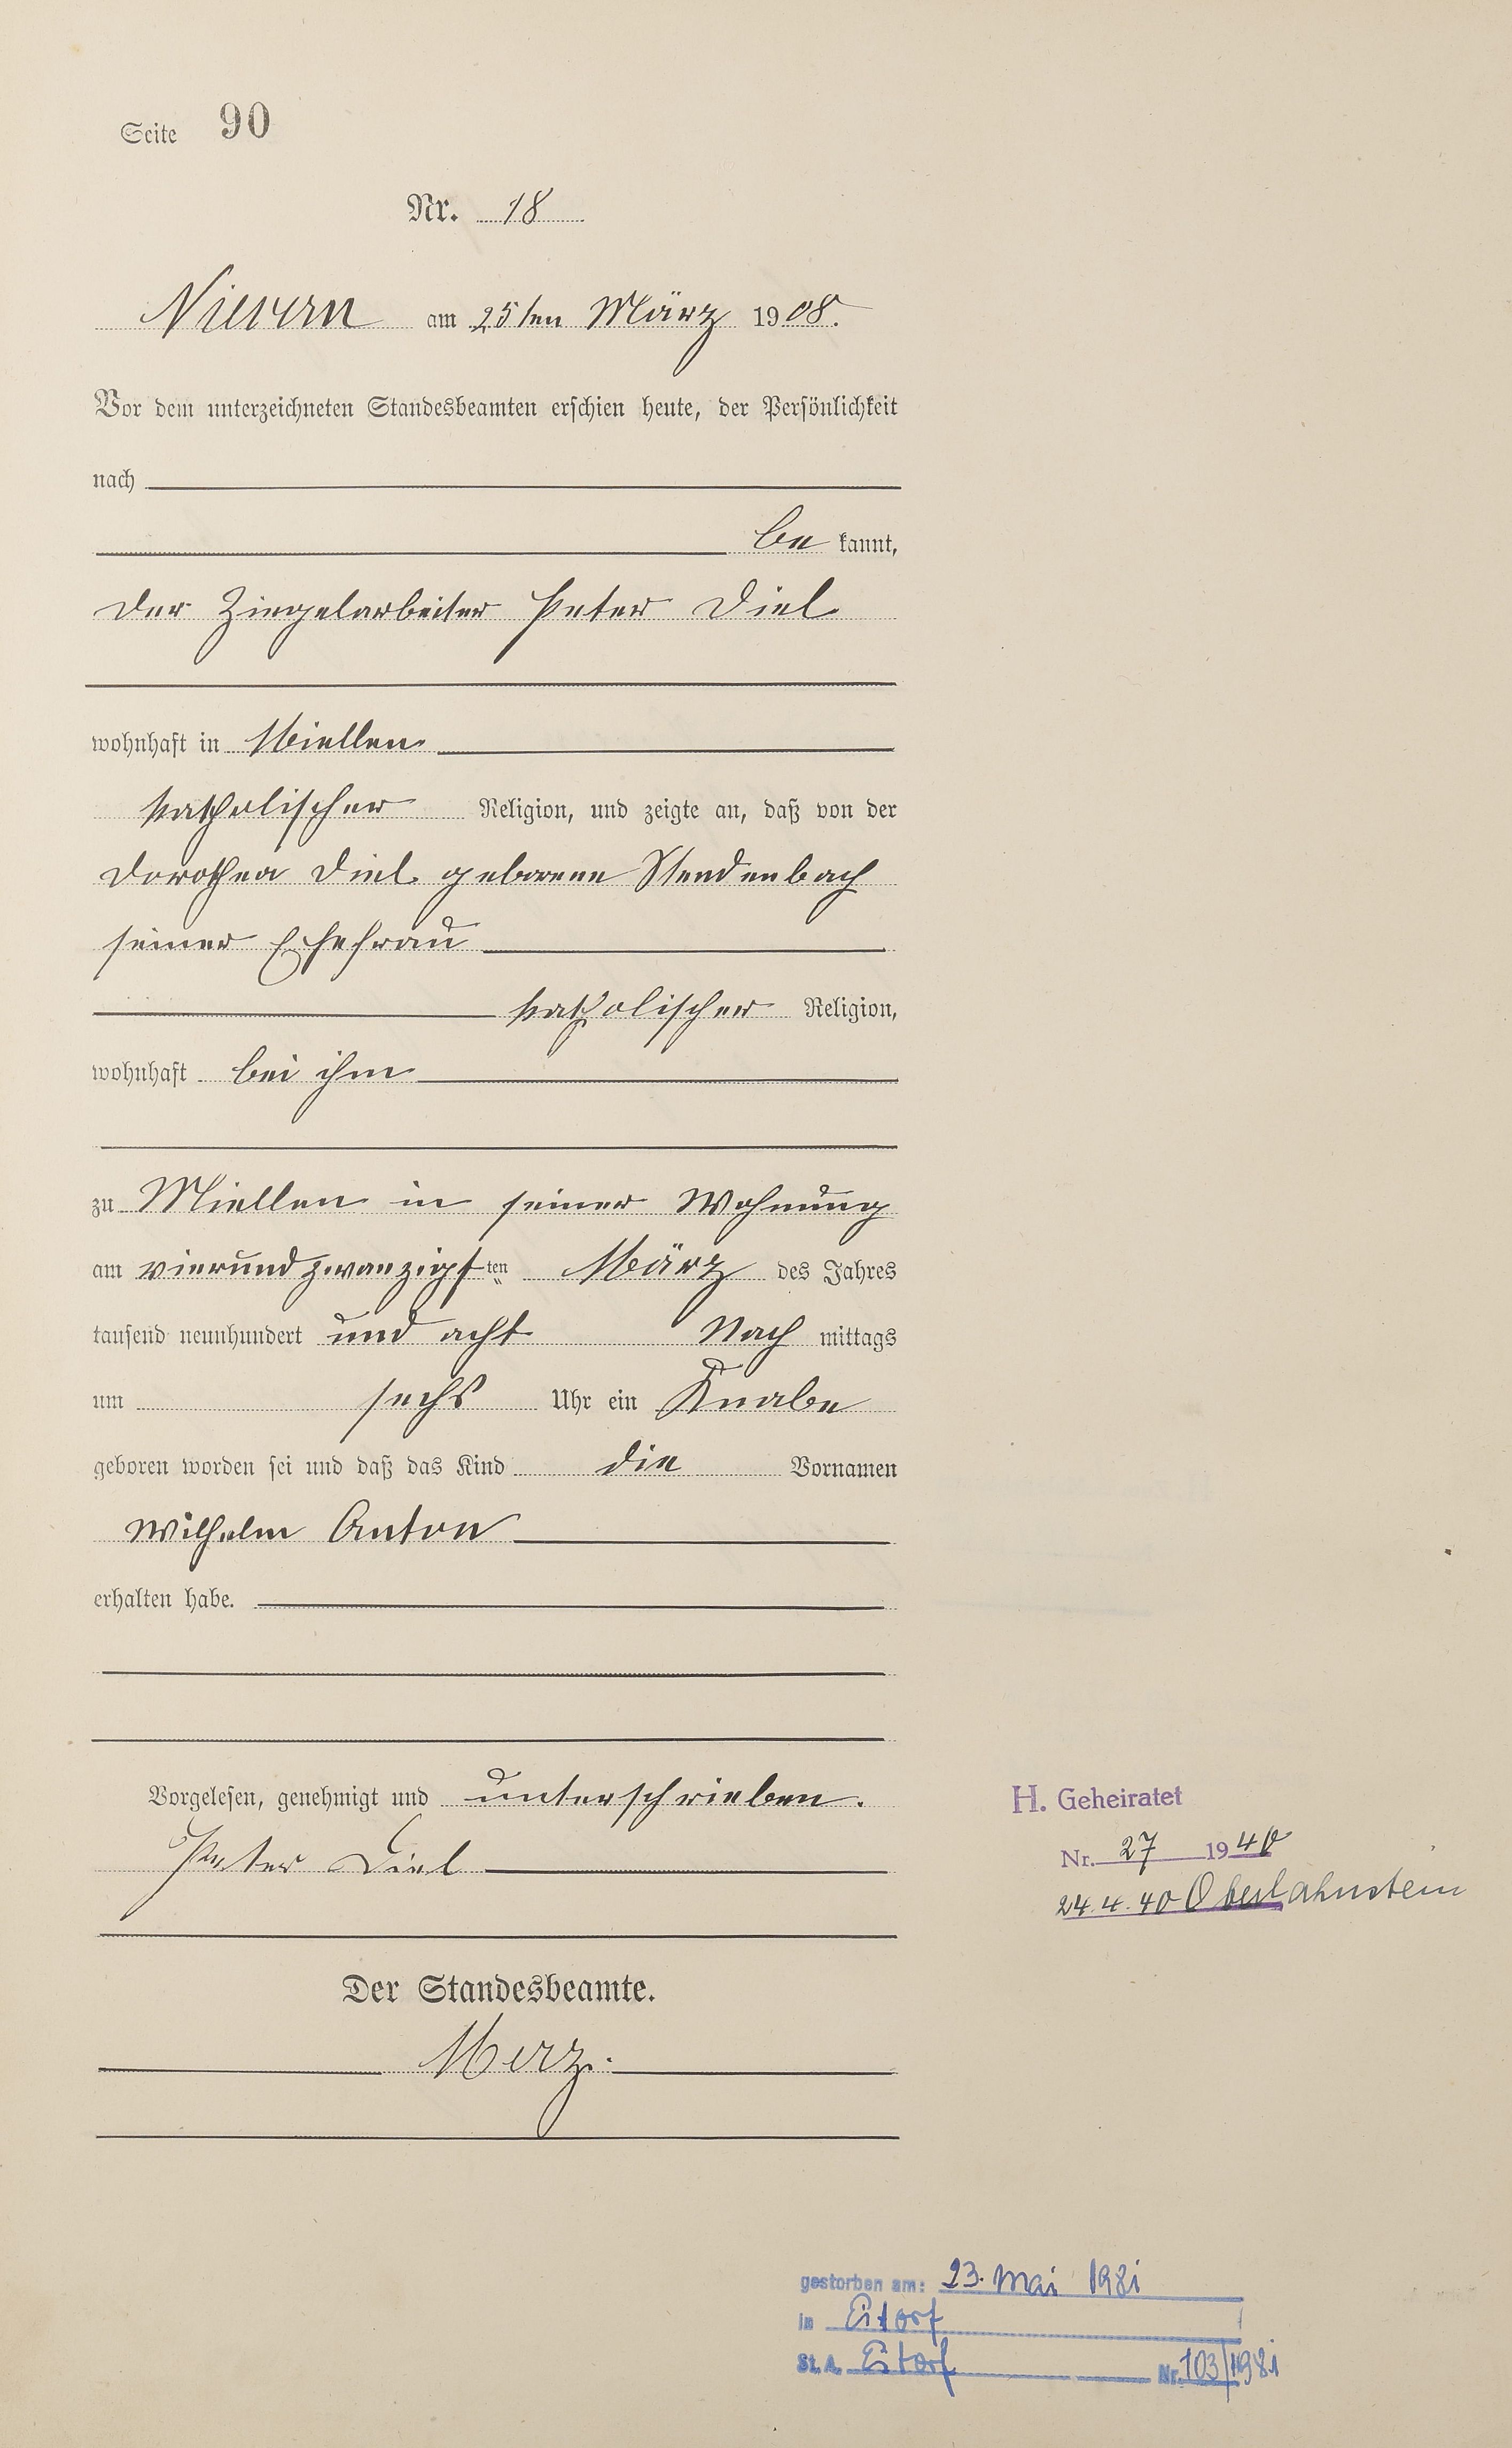 Seite 90
Nr. 18
Nievern am 25ten März 1908.
Vor dem unterzeichneten Standesbeamten erschien heute, der Persönlichkeit
nach
be kannt,
der Ziegelarbeiter Peter Diel
wohnhaft in Miellen
katholischer Religion, und zeigte an, daß von der
Dorothea Diel geborene Stendenbach
seiner Ehefrau
katholischer Religion,
wohnhaft bei ihm
zu Miellen in seiner Wohnung
am vierundzwanzigsten März des Jahres
tausend neunhundert und acht Nach mittags
um sechs Uhr ein Knabe
geboren worden sei und daß das Kind die Vornamen
Wilhelm Anton
erhalten habe.
Vorgelesen, genehmigt und unterschrieben.
Peter Diel
Der Standesbeamte.
Merz.
H. Geheiratet
Nr. 27 1940
24.4.40 Oberlahnstein
gestorben am: 23. Mai 1981
in Eitorf
St. A. Eitorf Nr. 103/1981